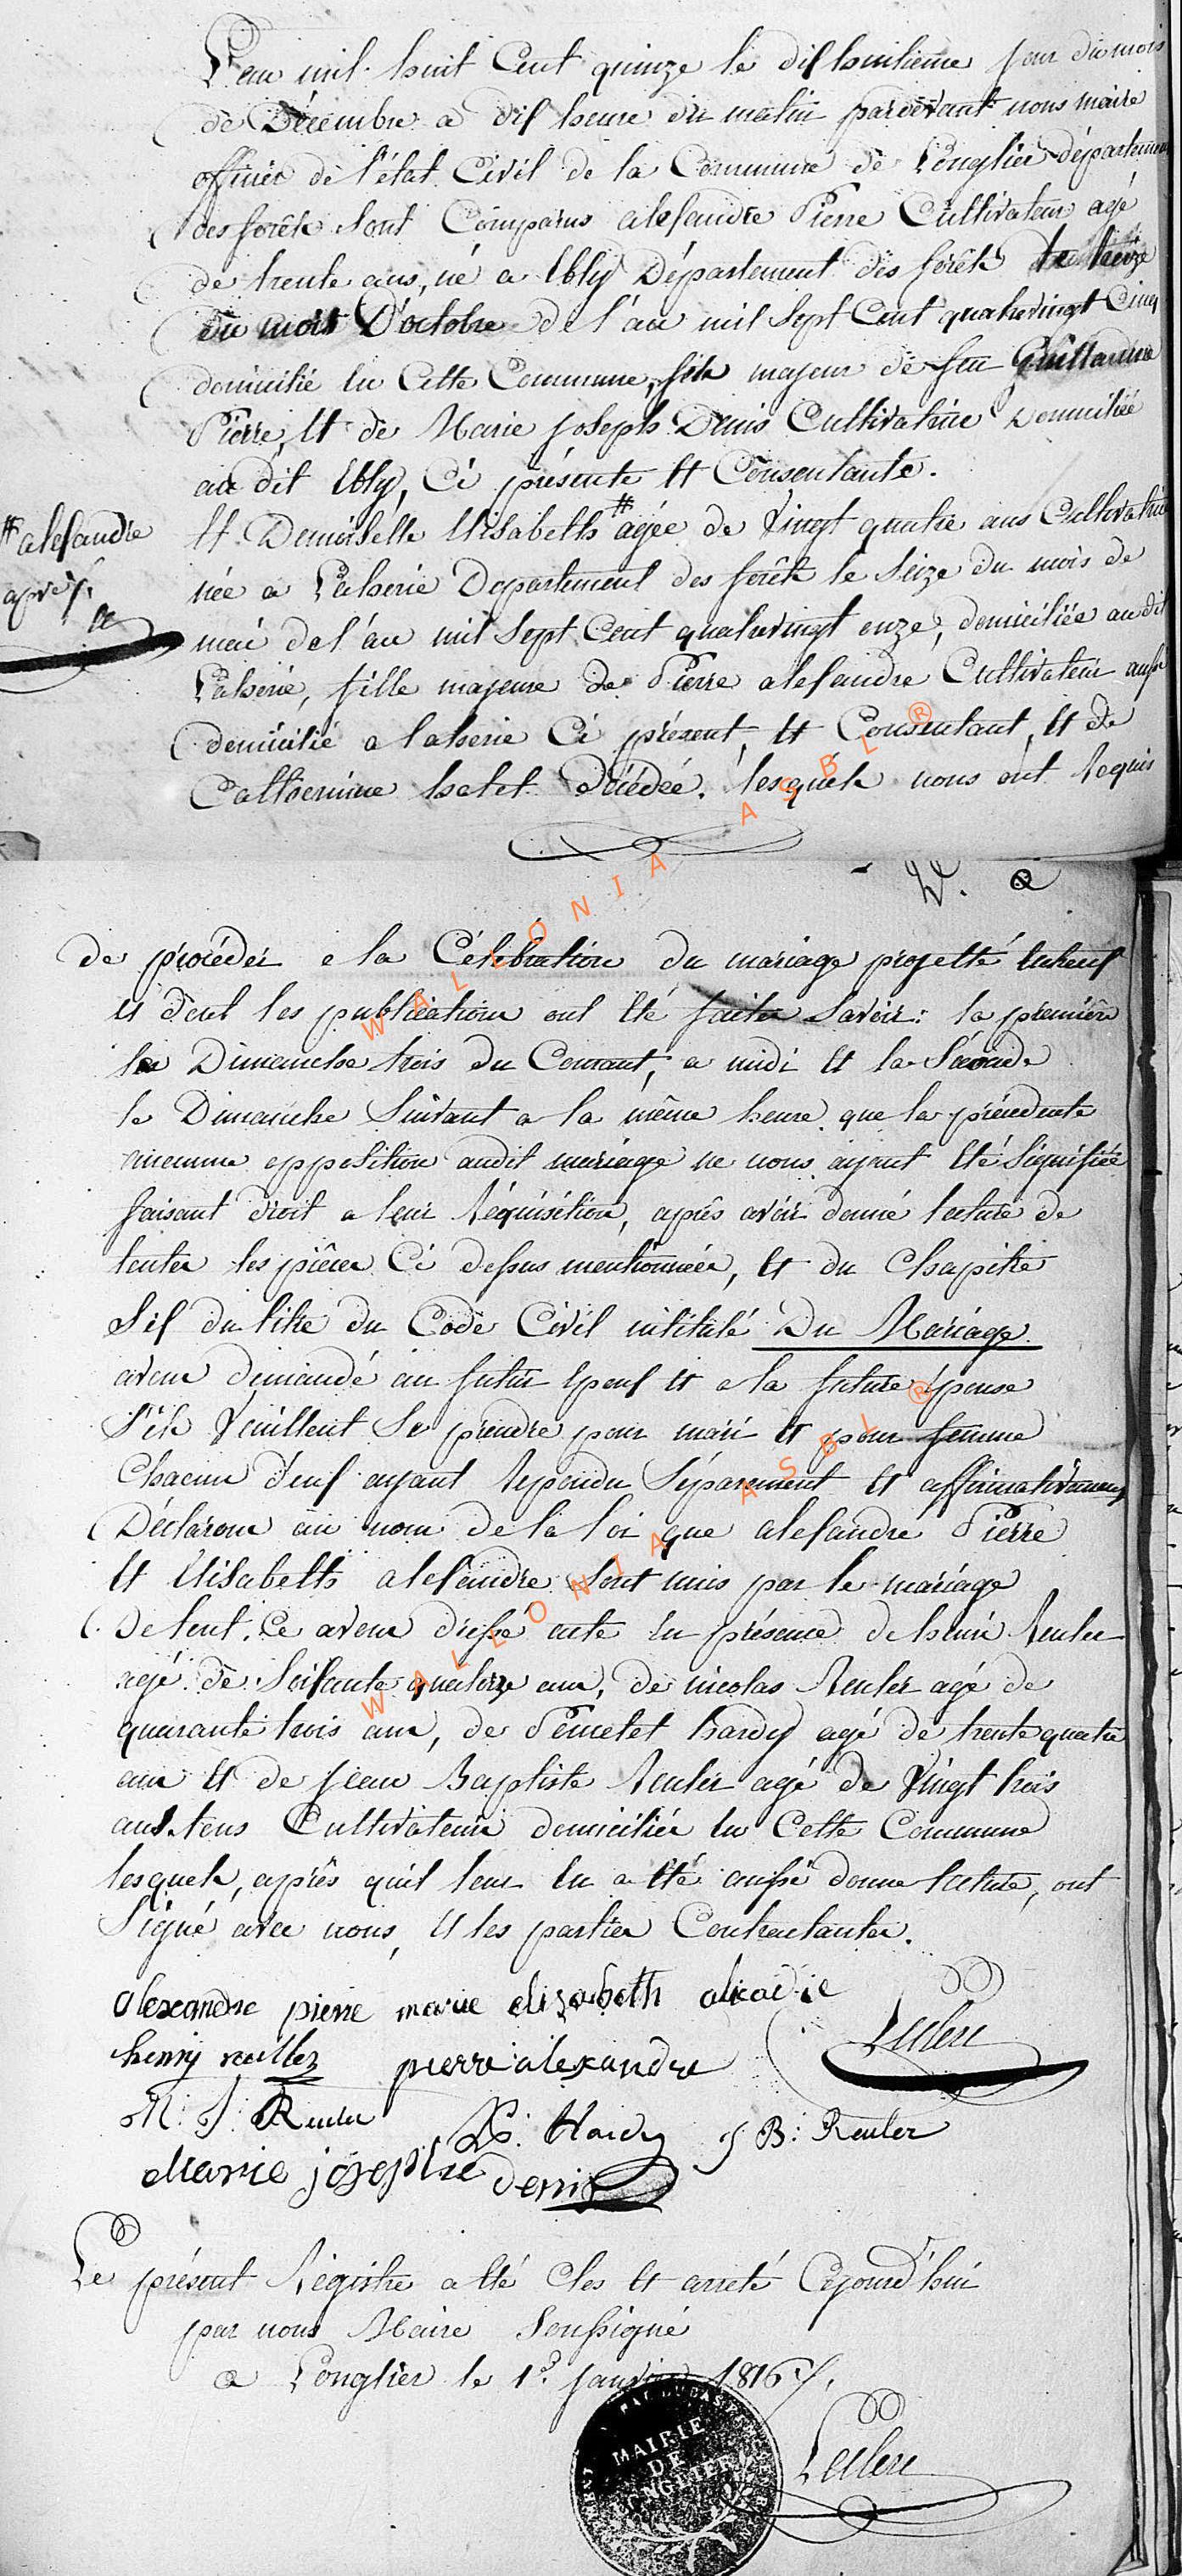 L'an mil huit Cent quinze le dix huitieme jour du mois
de Décembre a dix heure du matin pardevant nous maire
officier de l'état Civil de la Commune de Longlier département
des forêts sont Comparus alexandre Pierre Cultivateur agé
de trente ans, né a Ebly Département des forêts le treize
du mois D'octobre de l'an mil Sept Cent quatrevingt Cinq
domicilié en Cette Commune, fils majeur de feu Guillaume
Pierre, et de Marie joseph Denis Cultivatrice Domiciliée
au dit Ebly, Ci présente et Consentante.
Et Demoiselle Elisabeth # agée de Vingt quatre ans Cultivatrice
# alexandre
aprvé.
née a Laherie Departement des forêts le Seize du mois de
mai de l'an mil Sept Cent quatrevingt onze, domiciliée audit
Laherie, fille majeure de Pierre alexandre Cultivateur aussi
domicilié a laherie Ci présent, et Consentant, et de
Catherinne hotet Décédée. lesquels nous ont requis
de procéder a la Célébration du mariage projetté entreux
et dont les publications ont été faites Savoir: la première
le Dimanche trois du Courant, a midi et la Séconde
le Dimanche Suivant a la même heure que la précedente
aucunne opposition audit mariage ne nous ayant été Signifiée
faisant droit a leur réquisition, après avoir donné lecture de
toutes les pièces Ci dessus mentionnées, et du Chapitre
Six du titre du Code Civil intitulé Du Mariage.
avons demandé au futur Epoux et a la future épouse
S'ils Veuillent Se prendre pour mari et pour femme
Chacun d'eux ayant repondu Séparement et affirmativement
Déclarons au nom de la loi que alexandre Pierre
Et Elisabeth alexandre Sont unis par le mariage
De tout. Ce avons dressé acte en présence de henri Reuler
agé de Soixante quatorze ans, de nicolas Reuler agé de
quarante trois ans, de Poncelet hardy agé de trente quatre
ans et de jean Baptiste Reuler agé de Vingt trois
ans. tous Cultivateurs domiciliés en Cette Commune
lesquels, après quil leur en a été aussi donné lecture, ont
Signé avec nous, et les parties Contractantes.
alexandre pierre marie elizabeth
henry pierre alexandre Leclere
N: J: Reuler P: Hardy J B: Reuler
Marie josephe denis
Le présent Registre a été Clos et arreté Cejourd'hui
par nous Maire Soussigné
a Longlier le 1er. janvier 1816
MAIRIE
DE
LONGLIER
Leclere
WALLONIA ASBL ®
WALLONIA ASBL ®